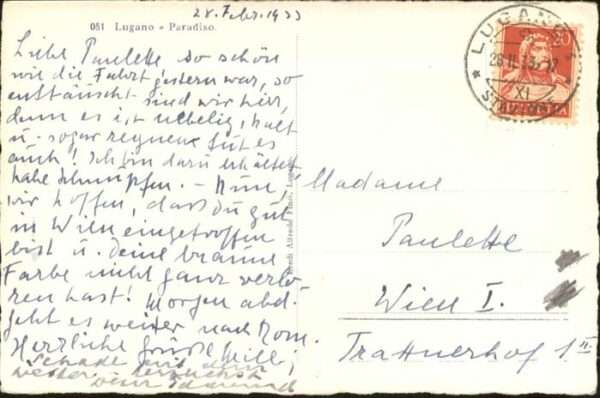 28. Febr. 1933
051 Lugano - Paradiso.
Liebe Paulette so schön
wie die Fahrt gestern war, so
enttäuscht sind wir hier,
denn es ist nebelig, kalt
u. sogar regnen tut es
auch! Ich bin dazu erkältet
habe Schnupfen. – Nun,
wir hoffen, dass Du gut
in Wien eingetroffen
bist u. Deine braune
Farbe nicht ganz verlo-
ren hast! Morgen abd.
geht es weiter nach Rom.
Herzliche Grüße
Schade
LUGANO
20
XI
HELVETIA
Madame
Paulette
Wien I.
Trattnerhof 1